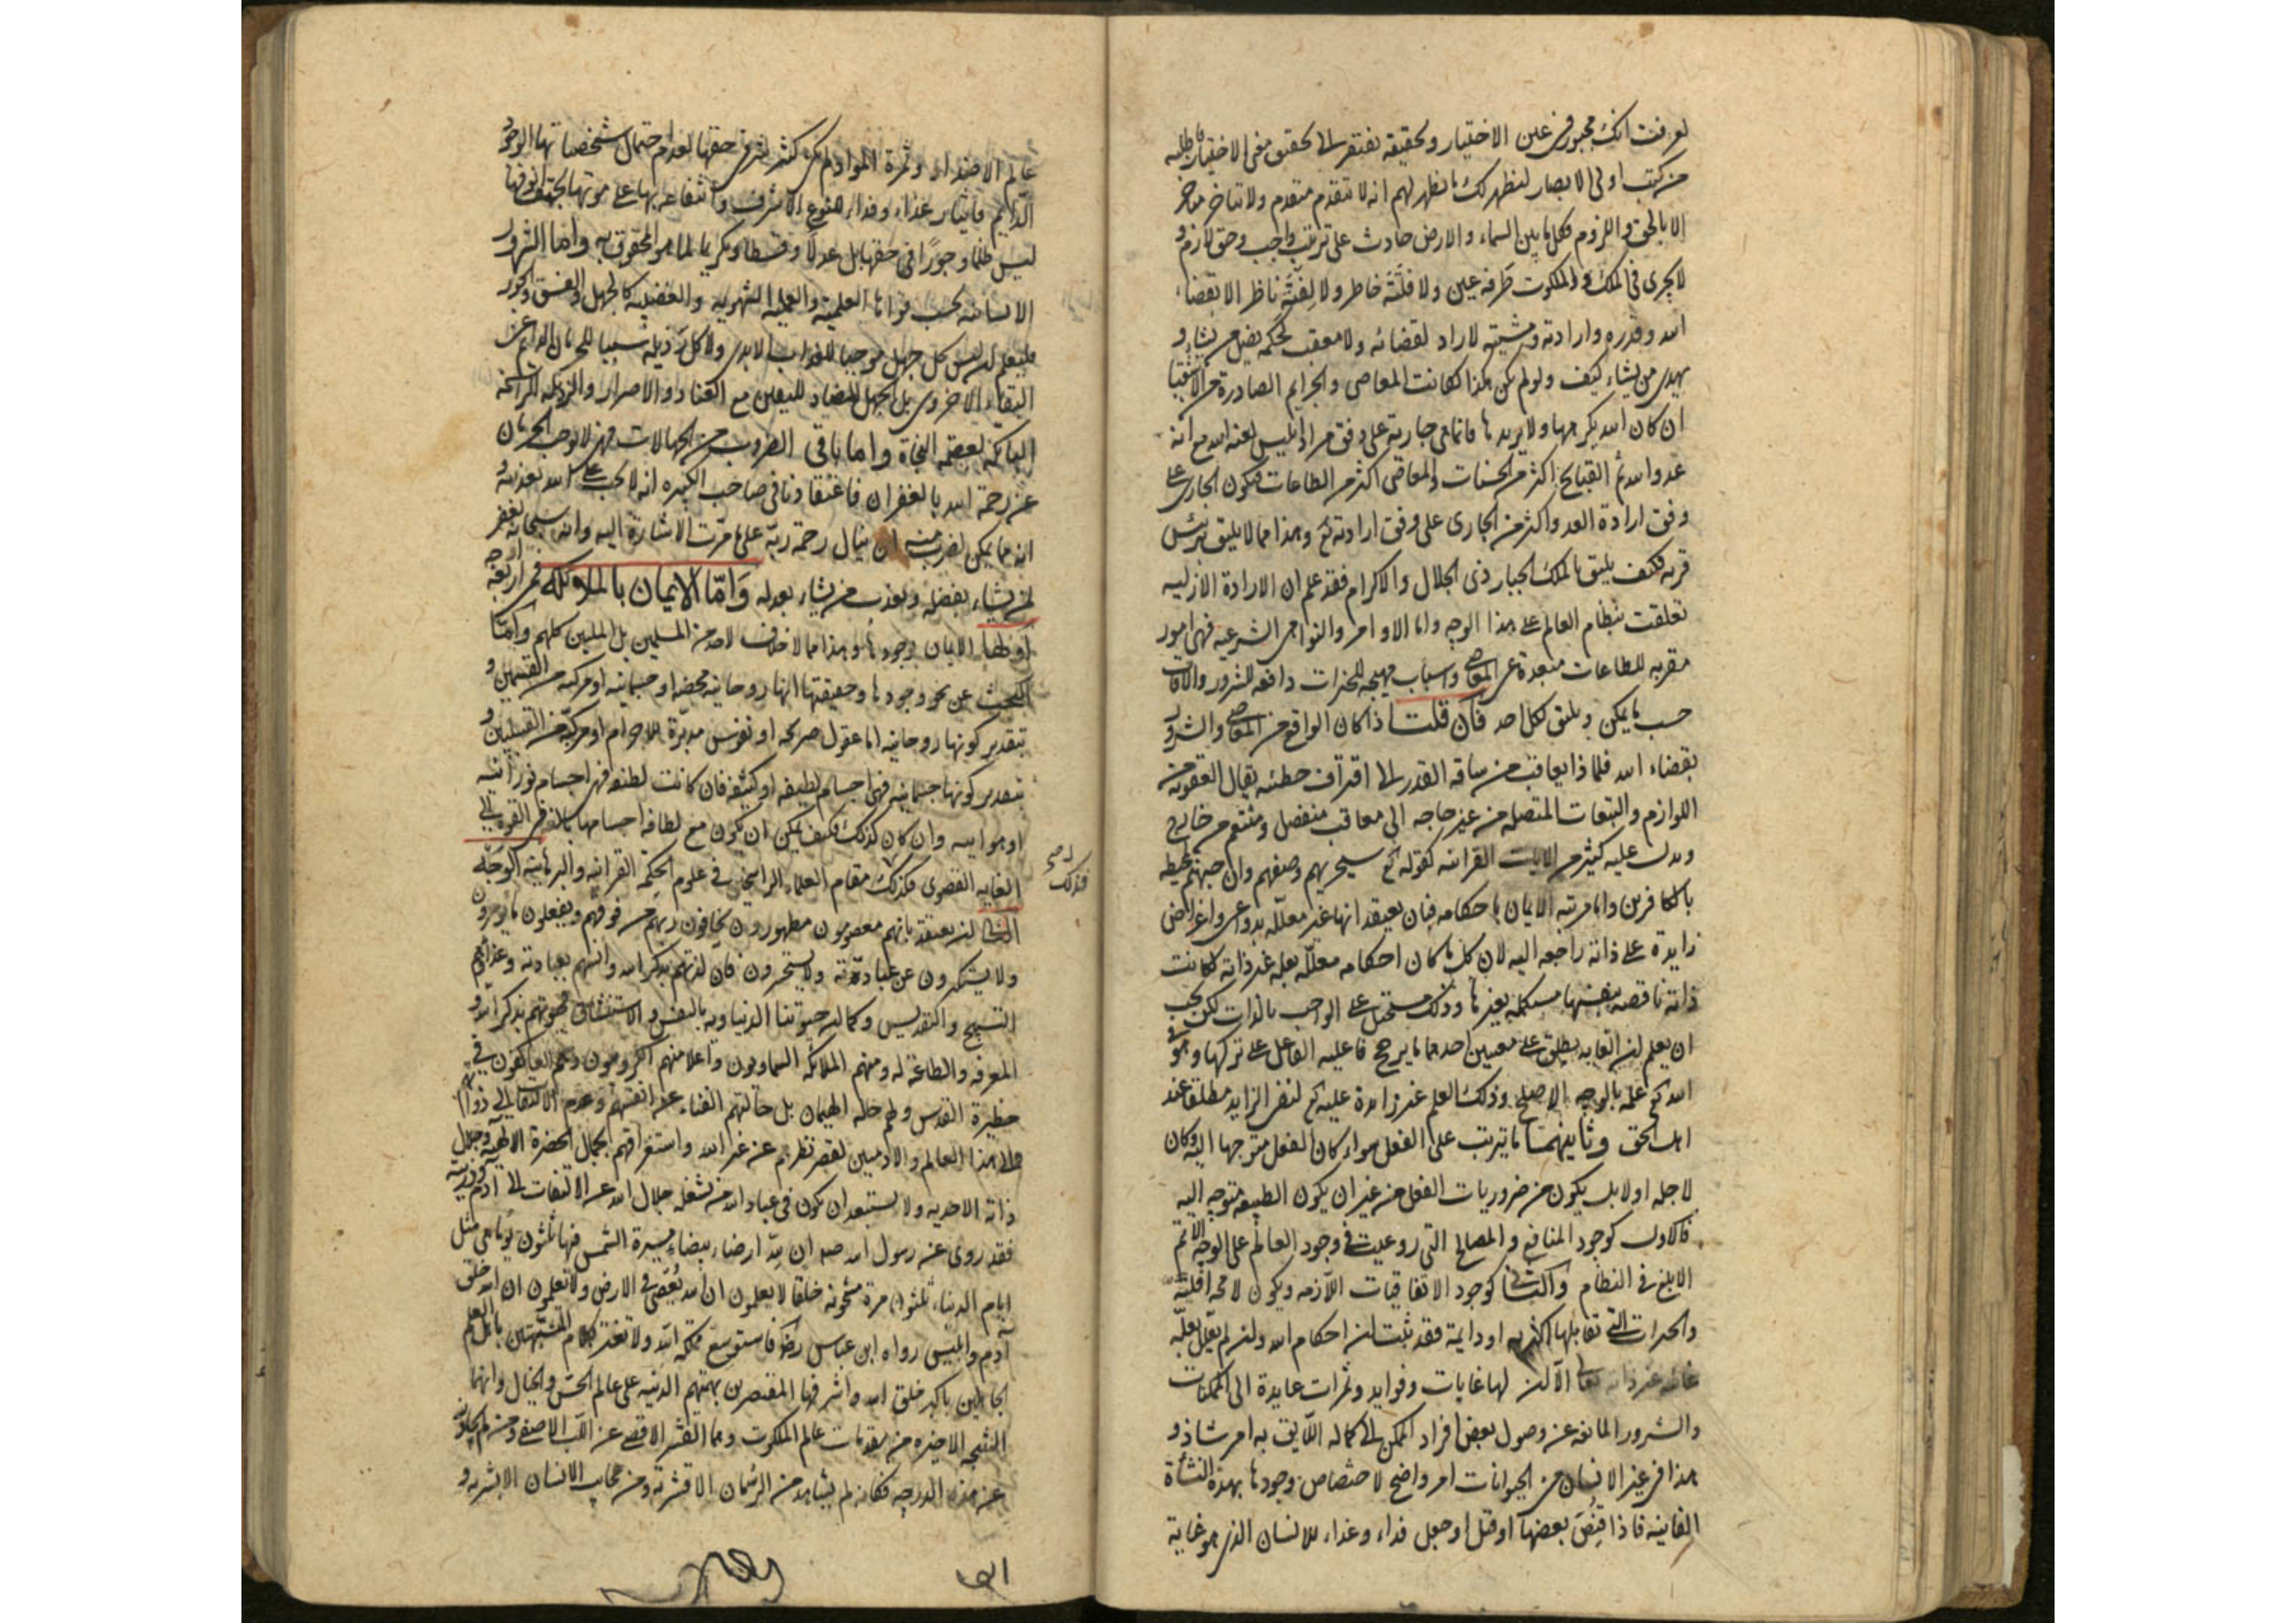 لعرفت انك مجبور في عين الاختيار وتحقيقه يفتقر الى تحقيق معنى الاختيار فاطلبه
من كتب اولى الابصار ليظهر لك ما ظهر لهم انه لا يتقدم متقدم ولا يتاخر متاخر
الا بالحق واللزوم فكل ما بين السماء والارض حادث على ترتيب واجب وحق لازم و
لا يجرى في الملك والملكوت طرفة عين ولا فلتة خاطر ولا لفتة ناظر الا بقضاء
الله وقدره وارادته ومشيته لا راد لقضائه ولا معقب لحكمه يضل من يشاء و
يهدى من يشاء كيف ولو لم يكن هكذا لكانت المعاصى والجرايم الصادرة من الاشقيا
ان كان الله يكرهها ولا يريدها فانما هى جارية على وفق مراد ابليس لعنه الله مع انه
عدو الله ثم القبايح اكثر من الحسنات والمعاصى اكثر من الطاعات فيكون الجارى على
وفق ارادة العدو اكثر من الجارى على وفق ارادته تع وهذا مما لا يليق برئيس
قرية فكيف يليق بالملك الجبار ذى الجلال والاكرام فقد علم ان الارادة الازلية
تعلقت بنظام العالم على هذا الوجه واما الاوامر والنواهى الشرعية فهى امور
مقربه للطاعات مبعدة عن المعاصى واسباب مهيجه للخيرات دافعه للشرور والآفات
حسب ما يمكن ويليق لكل احد فان قلت اذا كان الواقع من المعاصى والشرور
بقضاء الله فلماذا يعاقب من ساقه القدر الى اقتراف خطيئه يقال العقوبة من
اللوازم والتبعات المتصله من غير حاجه الى معاقب منفصل ومنتقم من خارج
ويدل عليه كثير من الايات القرانيه كقوله تع سيجزيهم وصفهم وان جهنم لمحيطه
بالكافرين واما مرتبه الايمان باحكامه فبان يعتقد انها غير معلله بدواعى واغراض
زايدة على ذاته راجعه اليه لان كل ما كان احكامه معلله بعله غير ذاته لكانت
ذاته ناقصه بنفسها مستكمله بغيرها وذلك مستحيل على الواجب بالذات لكن يجب
ان يعلم ان الغايه يطلق على معنيين احدهما ما يرجح فاعليه الفاعل على تركها وهو في
الله تع علمه بالوجه الاصلح وذلك العلم غير زايدة عليه تع لنفى الزايد مطلقا عند
اهل الحق وثانيهما ما يترتب على الفعل سواء كان الفعل متوجها اليه وكان
لاجله اولا بل يكون من ضروريات الفعل من غير ان يكون الطبيعه متوجه اليه
فالاول كوجود المنافع والمصالح التى روعيت في وجود العالم على الوجه الاتم
الابلغ في النظام والثانى كوجود الاتفاقيات اللازمه ويكون لا محه اقلية
والخيرات التى تقابلها اكثريه او دايمة فقد ثبت ان احكام الله وان لم يعلل بعلة
غائيه غير ذاته تعالى الا ان لها غايات وفوايد وثمرات عايدة الى الممكنات
والشرور المانعه عن وصول بعض افراد الممكن الى كماله اللايق به امر شاذ و
هذا في غير الانسان من الحيوانات امر واضح لاختصاص وجودها بهذه النشأة
الفانيه فاذا قنص بعضها او قتل او جعل فداء وغذاء للانسان الذى هو غاية
عالم الاضداد وثمرة المواد لم يكن كثير شر في حقها لعدم احتمال شخصياتها الوجود
الدايم فايثار غذاء وفداء لنوع الاشرف وانتفاعه بها على موتها بحتف انوفها
ليس ظلما وجورا في حقها بل عدلا وقسطا وتكريما لما هو المحقوق به واما الشرور
الانسانيه بحسب قواها العلميه والعمليه الشهويه والغضبيه كالجهل والفسق والجور
فليعلم انه ليس كل جهل موجبا للعذاب الابدى ولا كل رذيله سببا للحرمان الدايم عن
البقاء الاخروى بل الجهل المضاد لليقين مع العناد والاصرار والرذيله الراسخه
البالكه لعصمة النجاة واما باقى الضروب من الجهالات فهى لا يوجب الحرمان
عن رحمة الله بالغفران فاعتقادنا في صاحب الكبيره انه لا يجب على الله تعذيبه و
انه مما يمكن لضرب منه ان ينال رحمة ربه على ما مرت الاشارة اليه وانه سبحانه يغفر
لمن يشاء بفضله ويعذب من يشاء بعدله واما الايمان بالملائكه فمن اربعة اوجه
اولها الايمان بوجودها وهذا مما لا خلاف لاحد من المسلمين بل المليين كلهم واما
البحث عن نحو وجودها وحقيقتها انها روحانيه محضه او جسمانيه او مركبه من القسمين و
بتقدير كونها روحانيه اما عقول صريحه او نفوس مدبرة للاجرام او مركبه من القبيلين و
بتقدير كونها جسمانيه فهى اجسام لطيفه او كثيفه فان كانت لطيفه فهى اجسام نورانيه
او هوائيه وان كان كذلك فكيف يمكن ان يكون مع لطافة اجسامها بالغه في القوه الى
الغايه القصوى فكذلك مقام العلماء الراسخين في علوم الحكمة القرانيه والبرهانيه الوجه
الثانى ان يعتقد بانهم معصومون مطهرون يخافون ربهم من فوقهم ويفعلون ما يؤمرون
ولا يستكبرون عن عبادته ولا يستحسرون فان لذتهم بذكر الله وانسهم بعبادته وغذاؤهم
التسبيح والتقديس وكما ان حيوتنا الدنياويه بالنفس والاستنشاق فحيوتهم بذكر الله و
المعرفه والطاعة له ومنهم الملائكه السماويون واعلا منهم الكروبيون وهم العاكفون في
حظيرة القدس ولهم حالة الهيمان بل حالتهم الفناء عن انفسهم وعدم الالتفات الى ذواتهم
والى هذا العالم والادميين لقصر نظرهم عن غير الله واستغراقهم بجمال الحضرة الالهيه وجلال
ذاته الاحديه ولا يستبعد ان يكون في عباد الله من يشغله جلال الله عن الالتفات الى آدم وذريته
فقد روى عن رسول الله صه ان لله ارضا بيضاء مسيرة الشمس فيها ثلثون يوما هى مثل
ايام الدنيا ثلثون مرة مشحونه خلقا لا يعلمون ان الله يعصى في الارض ولا يعلمون ان الله خلق
آدم وابليس رواه ابن عباس رض فاستوسع مملكة الله ولا تغتر بكلام المتشبهين باهل العلم
الجاهلين باكبر خلق الله واشرفها المقتصرين بهمتهم الدنيه على عالم الحس والخيال وانهما
النتيجه الاخيره من مقدمات عالم الملكوت وهما القشر الاقصى عن اللب الاصفى ومن لم يجاوز
عن هذه الدرجه فكانه لم يشاهد من الرمان الا قشرته ومن عجايب الانسان الا بشرته و